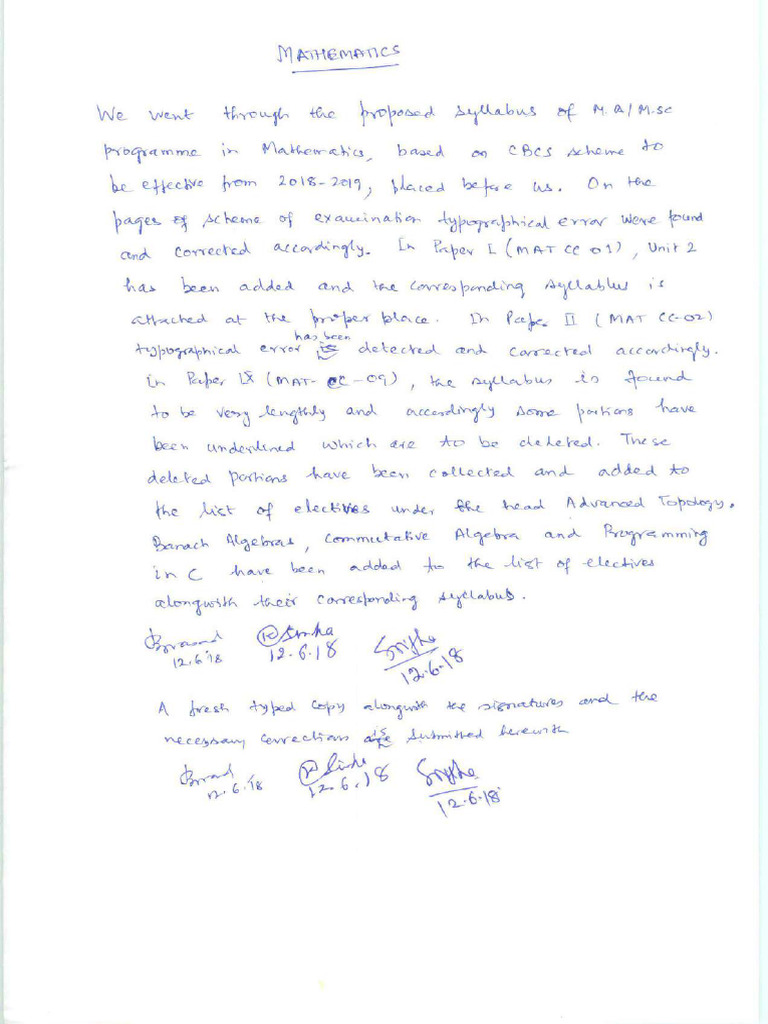 MATHEMATICS
We went through the proposed syllabus of M.A/M.sc
programme in Mathematics, based on CBCS scheme to
be effective from 2018-2019, placed before us. On the
pages of scheme of examination typographical error were found
and corrected accordingly. In Paper I (MAT CC 01), Unit 2
has been added and the corresponding syllablus is
attached at the proper place. In Paper II (MAT CC-02)
has been
typographical error is detected and corrected accordingly.
In Paper IX (MAT-CC-09), the syllabus is found
to be very lengthly and accordingly some portions have
been underlined which are to be deleted. These
deleted portions have been collected and added to
the list of electives under the head Advanced Topology.
Banach Algebras, Commutative Algebra and Programming
in C have been added to the list of electives
alongwith their corresponding syllabus.
12.6.18 12.6.18 12.6.18
A fresh typed copy alongwith the signatures and the
necessary corrections is submitted herewith
12.6.18 12.6.18 12.6.18